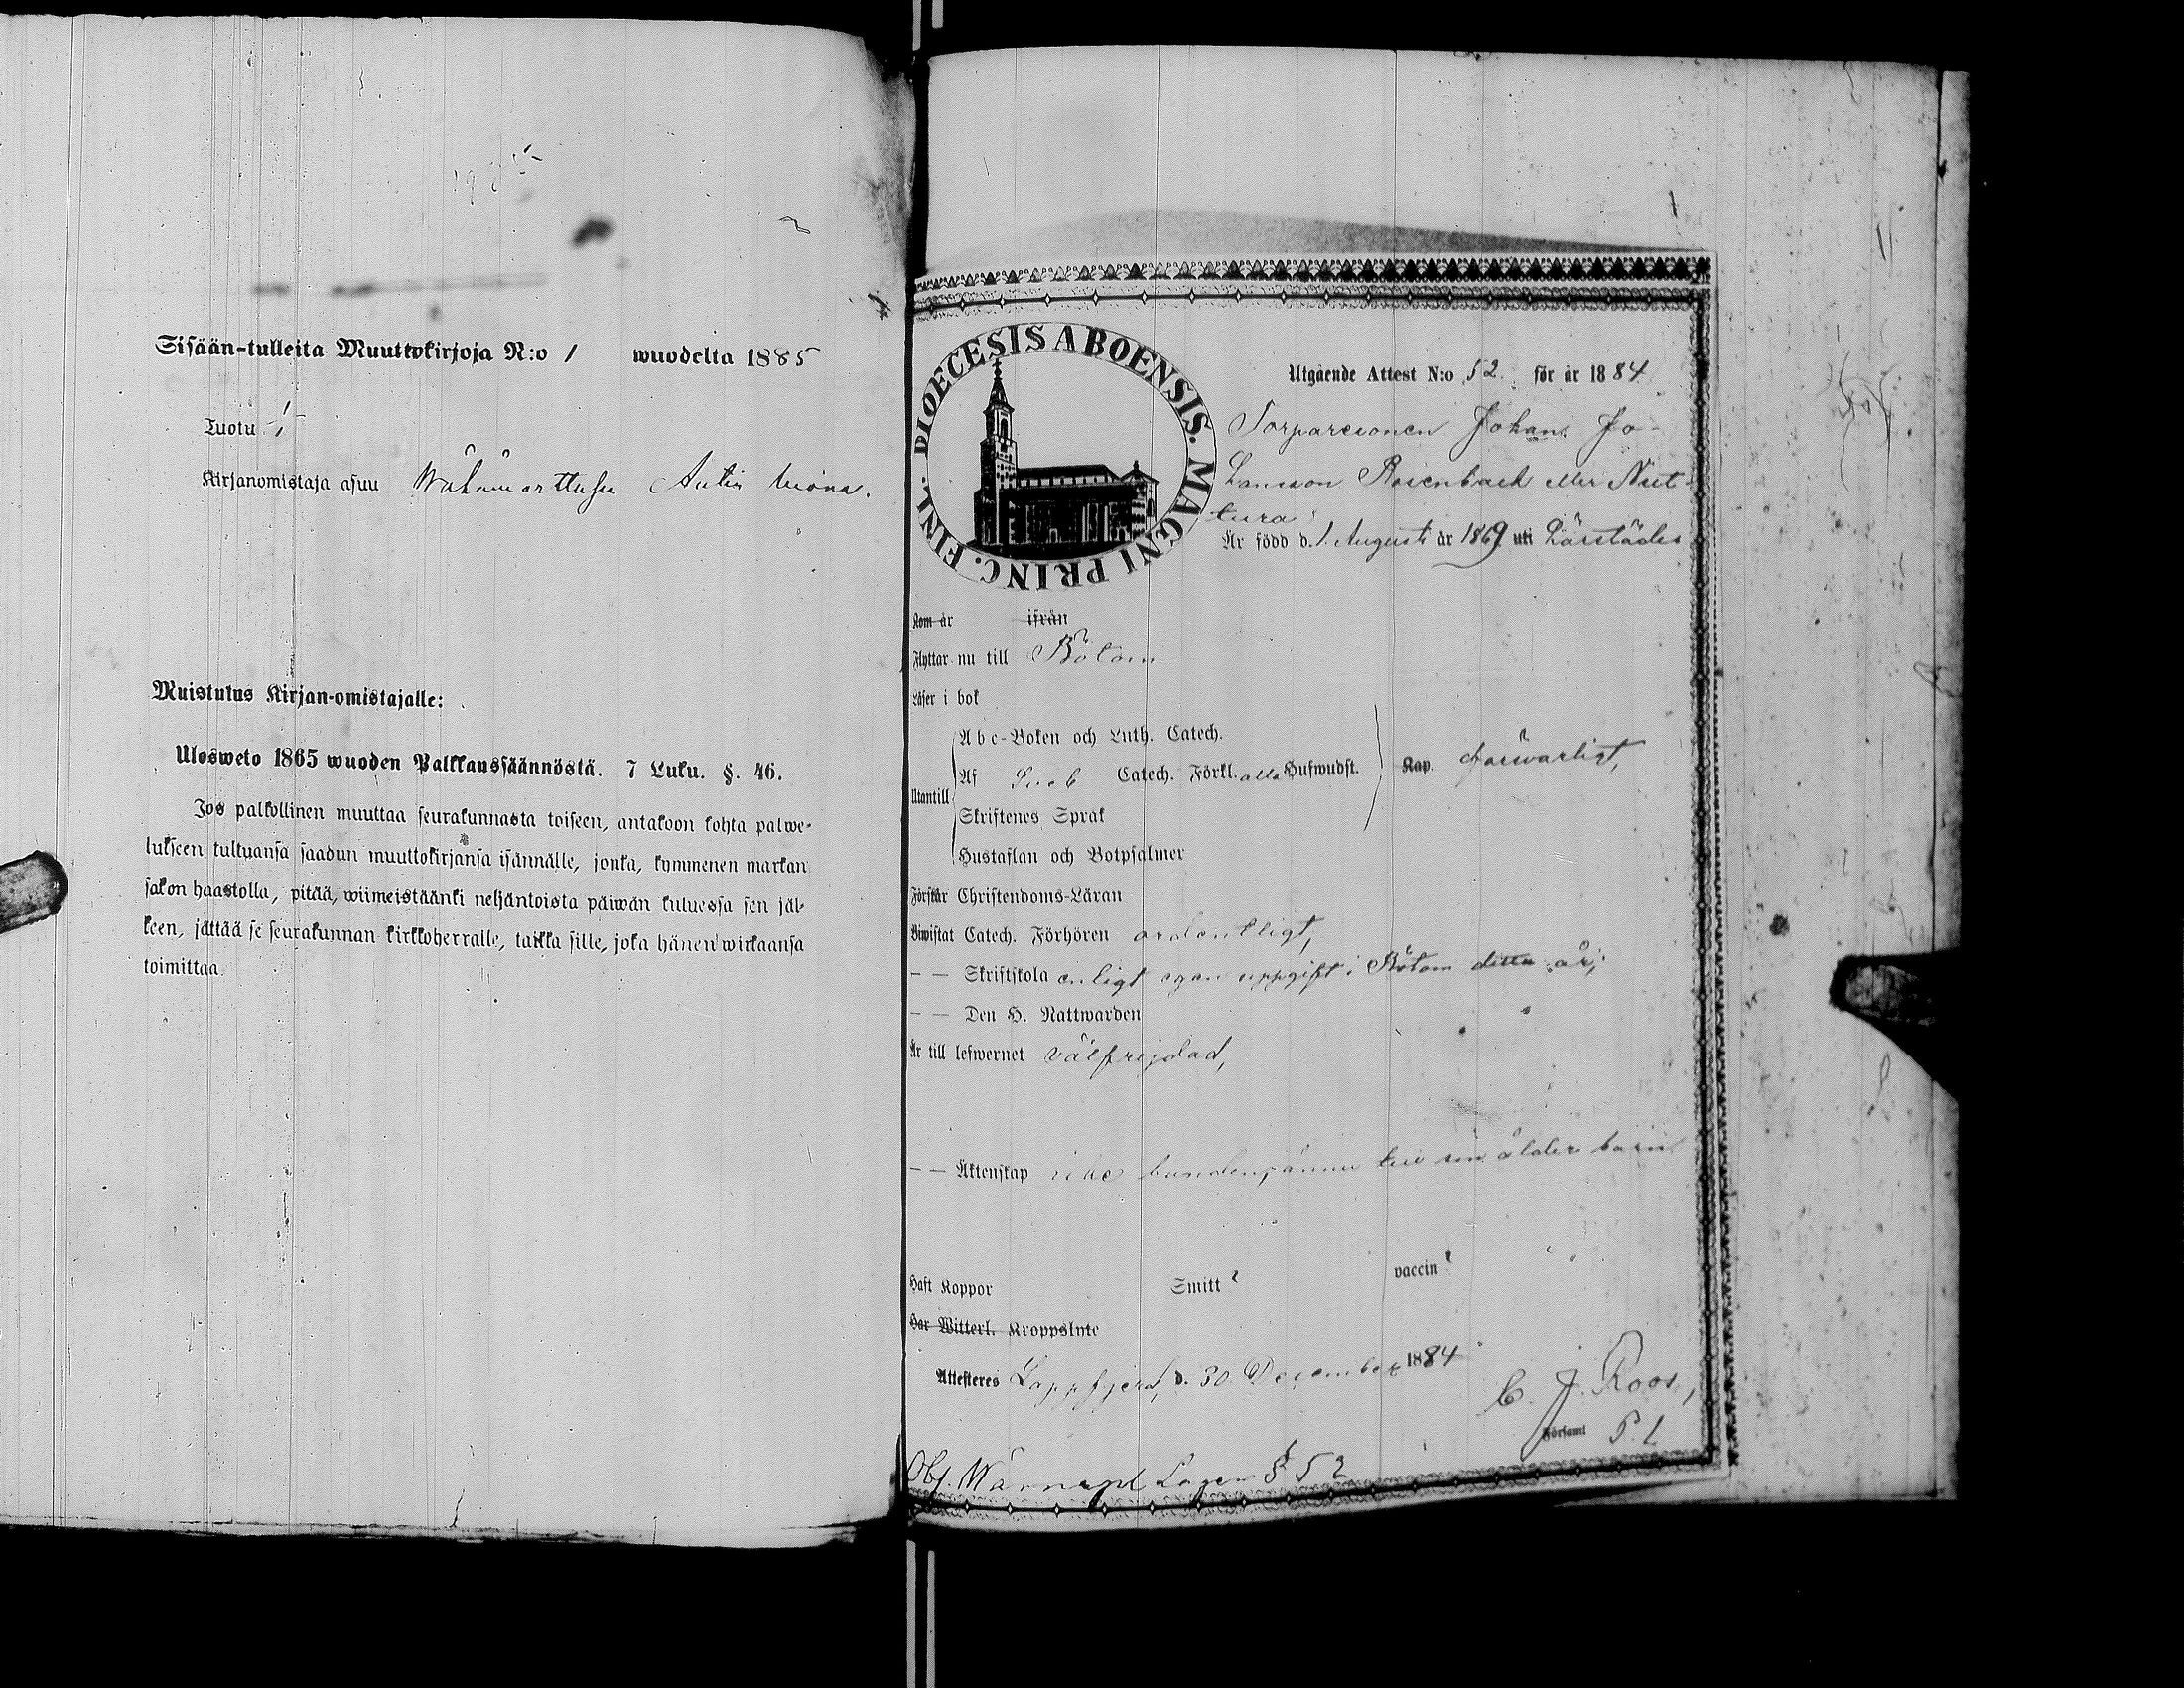 Sisään-tulleita Muuttokirjoja N:o 1 wuodelta 1885
Tuotu
Kirjanomistaja asuu Wähämarttusen Antin
Muistutus Kirjan-omistajalle:
Ulosweto 1865 wuoden Palkkaussäännöstä. 7 Luku. §. 46.
Jos palkollinen muuttaa seurakunnasta toiseen, antakoon kohta palwe-
lukseen tultuansa saadun muuttokirjansa isännälle, jonka, kymmenen markan
sakon haastolla, pitää, wiimeistäänki neljäntoista päiwän kuluessa sen jäl-
keen, jättää se seurakunnan kirkkoherralle, taikka sille, joka hänen wirkaansa
toimittaa.
DIOECESIS ABOENSIS. MAGNI PRINC. FINL.
Utgående Attest N:o 52 för år 1884
Torparesonen Johan Jo-
hansson Rosenback eller
Är född d. 1 Augusti år 1869 uti Härstädes
Kom år ifrån
Flyttar nu till Bötom
Läser i bok
Abc-Boken och Luth. Catech.
Utantill
Af Sveb Catech. Förkl. alla Hufwudst. Kap. försvarligt,
Skriftenes Språk
Hustaflan och Botpsalmer
Förstår Christendoms-Läran
Biwistat Catech. Förhören ordentligt,
— — Skriftskola enligt egen uppgift i Bötom detta år;
— — Den H. Nattwarden
Är till lefwernet välfrejdad,
— — Äktenskap icke bunden, ännu till sin ålder barn
Haft Koppor Smitt? vaccin?
Har Witterl. Kroppslyte
Attesteras Lappfjerd, d. 30 December 1884
C. J. Roos,
Församl
Obs. Wärnepl Lagen § 52